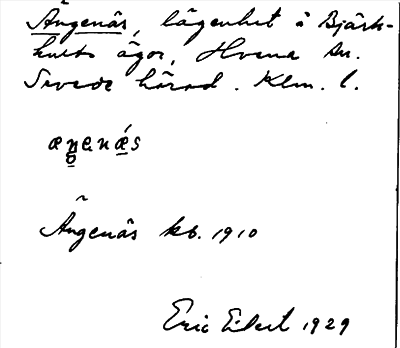 Ängenäs, lägenhet å Björk-
hults ägor, Hvena sn.
Sevede härad. Klm. l.
Ängenäs kb. 1910
Eric Eilert 1929